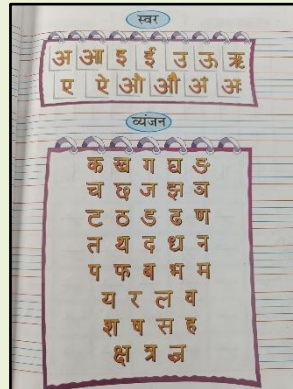 स्वर
अ आ इ ई उ ऊ ऋ
ए ऐ ओ औ अं अः
व्यंजन
क ख ग घ ङ
च छ ज झ ञ
ट ठ ड ढ ण
त थ द ध न
प फ ब भ म
य र ल व
श ष स ह
क्ष त्र ज्ञ